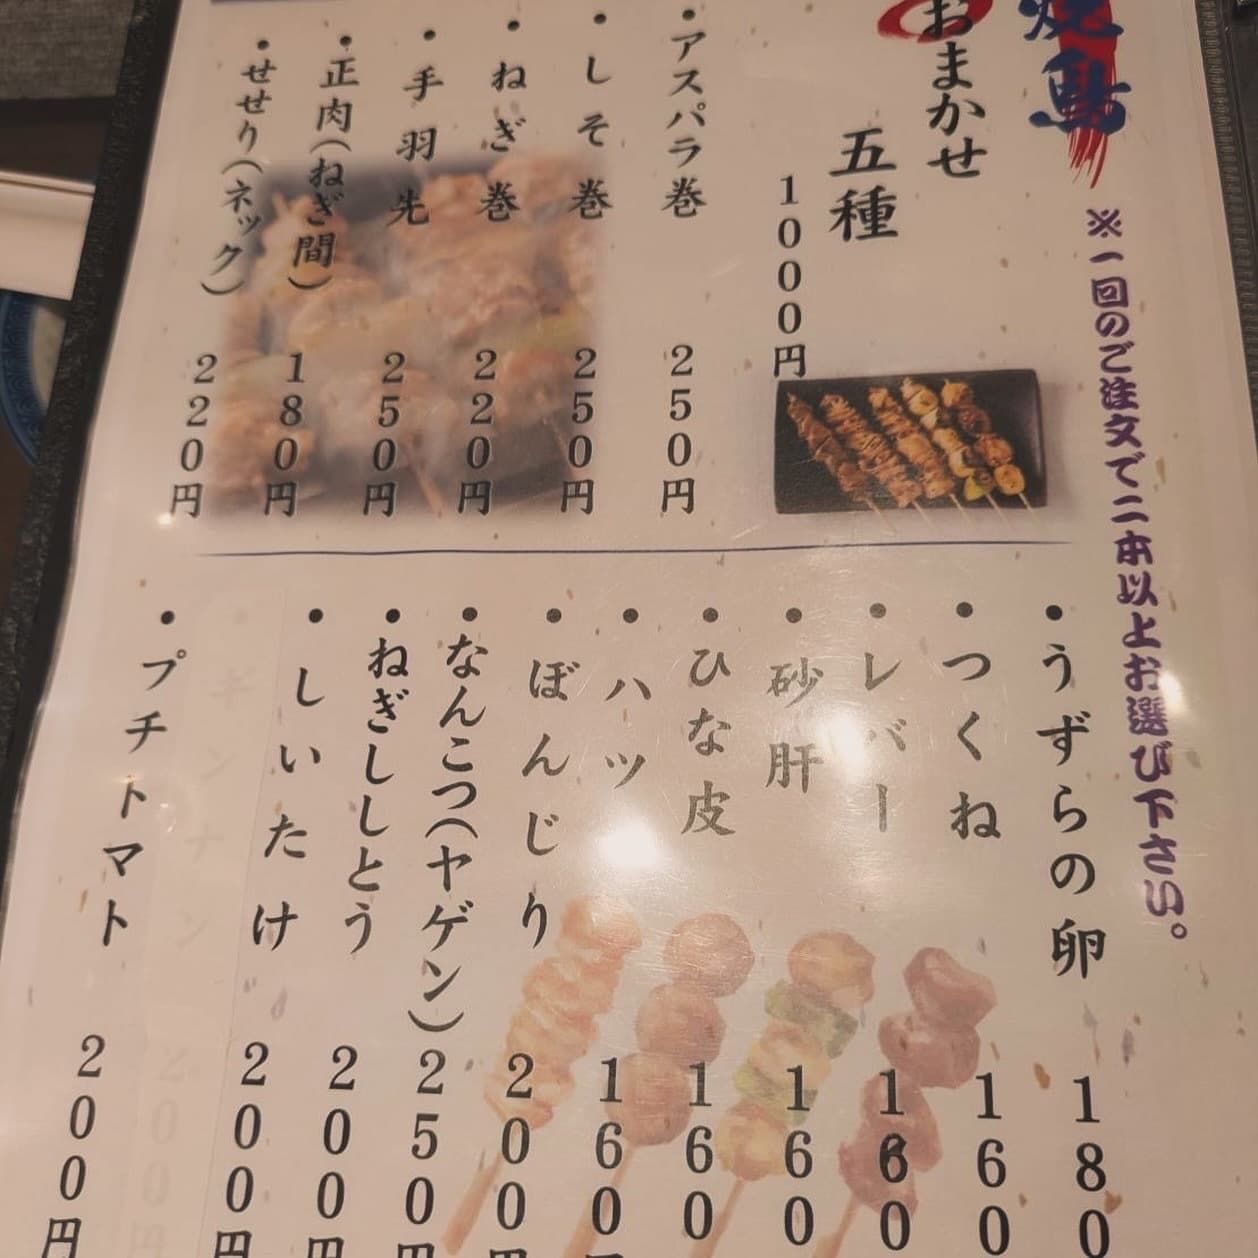 焼鳥
※一回のご注文で二本以上お選び下さい。
おまかせ
五種
1000円
・アスパラ巻 250円
・しそ巻 250円
・ねぎ巻 220円
・手羽先 250円
・正肉(ねぎ間) 180円
・せせり(ネック) 220円
・うずらの卵 180
・つくね 160
・レバー 160
・砂肝 160
・ひな皮 160
・ハツ 160円
・ぼんじり 200円
・なんこつ(ヤゲン) 250円
・ねぎししとう 200円
・しいたけ 200円
・ギンナン 200円
・プチトマト 200円